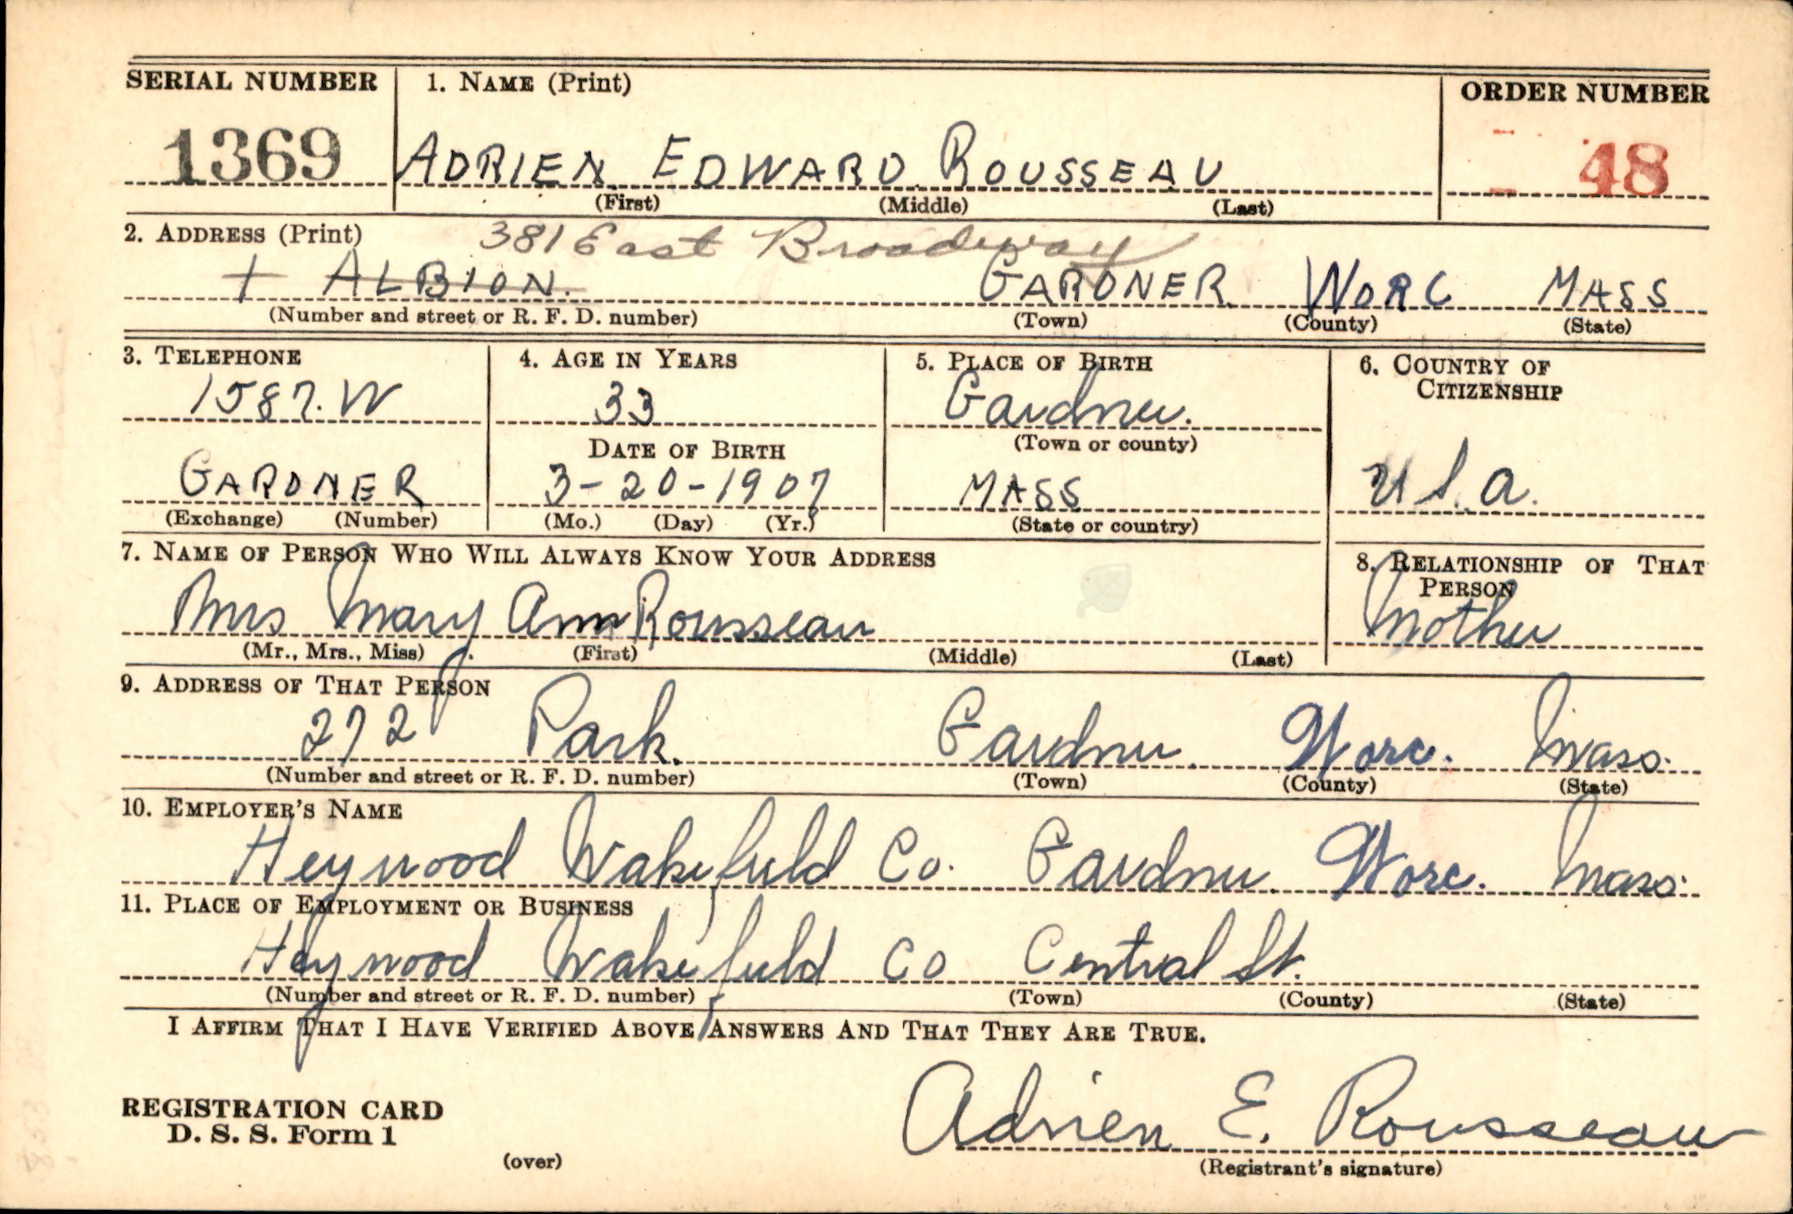 SERIAL NUMBER 1. NAME (Print) ORDER NUMBER
1369 ADRIEN EDWARD ROUSSEAU 48
(First) (Middle) (Last)
2. ADDRESS (Print) 381 East Broadway
1 ALBION. GARDNER WORC MASS
(Number and street or R. F. D. number) (Town) (County) (State)
3. TELEPHONE 4. AGE IN YEARS 5. PLACE OF BIRTH 6. COUNTRY OF CITIZENSHIP
1587.W 33 Gardner.
DATE OF BIRTH (Town or county)
GARDNER 3-20-1907 MASS U.S.A.
(Exchange) (Number) (Mo.) (Day) (Yr.) (State or country)
7. NAME OF PERSON WHO WILL ALWAYS KNOW YOUR ADDRESS 8. RELATIONSHIP OF THAT PERSON
Mrs Mary Ann Rousseau Mother
(Mr., Mrs., Miss) (First) (Middle) (Last)
9. ADDRESS OF THAT PERSON
272 Park. Gardner. Worc. Mass.
(Number and street or R. F. D. number) (Town) (County) (State)
10. EMPLOYER'S NAME
Heywood Wakefield Co. Gardner. Worc. Mass.
11. PLACE OF EMPLOYMENT OR BUSINESS
Heywood Wakefield Co Central St.
(Number and street or R. F. D. number) (Town) (County) (State)
I AFFIRM THAT I HAVE VERIFIED ABOVE ANSWERS AND THAT THEY ARE TRUE.
REGISTRATION CARD
D. S. S. Form 1 Adrien E. Rousseau
(over) (Registrant's signature)